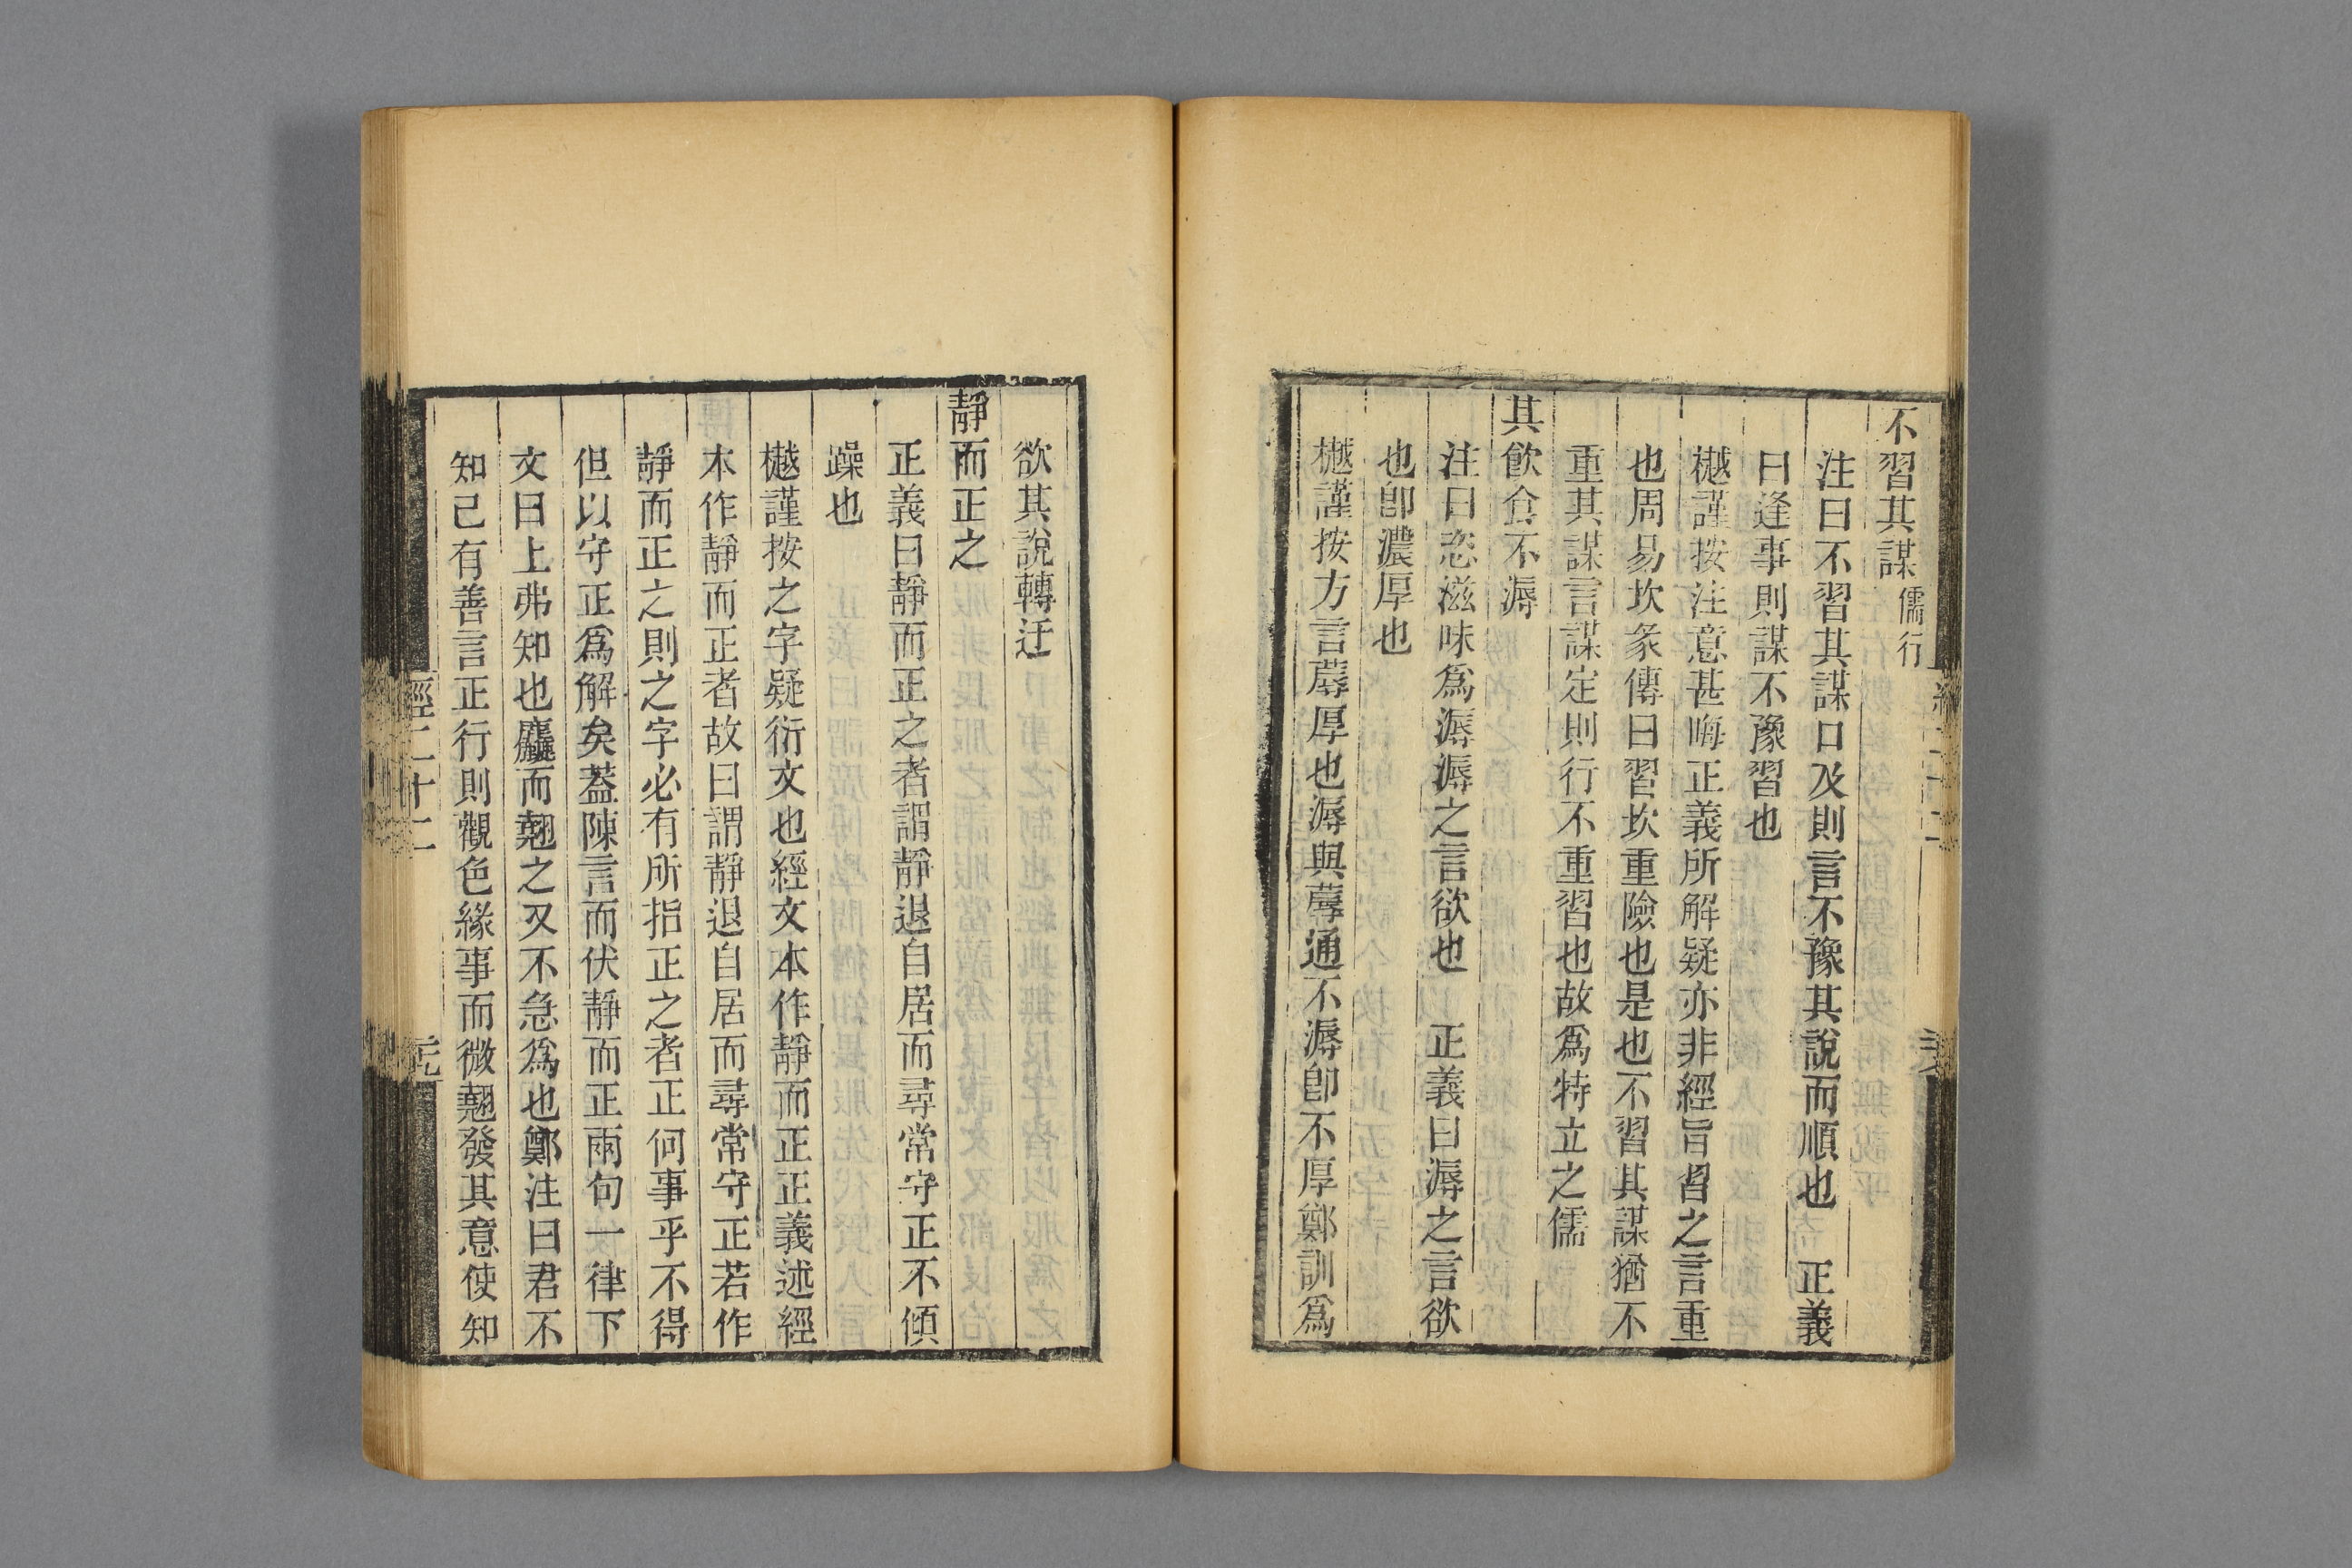 不習其謀儒行
注曰不習其謀口及則言不豫其說而順也　正義
曰逢事則謀不豫習也
樾謹按注意甚晦正義所解疑亦非經旨習之言重
也周易坎彖傳曰習坎重險也是也不習其謀猶不
重其謀言謀定則行不重習也故爲特立之儒
其飮食不溽
注曰恣滋味爲溽溽之言欲也　正義曰溽之言欲
也卽濃厚也
樾謹按方言蓐厚也溽與蓐通不溽卽不厚鄭訓爲
欲其說轉迂
靜而正之
正義曰靜而正之者謂靜退自居而尋常守正不傾
躁也
樾謹按之字疑衍文也經文本作靜而正正義述經
本作靜而正者故曰謂靜退自居而尋常守正若作
靜而正之則之字必有所指正之者正何事乎不得
但以守正爲解矣蓋陳言而伏靜而正兩句一律下
文曰上弗知也麤而翹之又不急爲也鄭注曰君不
知己有善言正行則觀色緣事而微翹發其意使知
經二十二